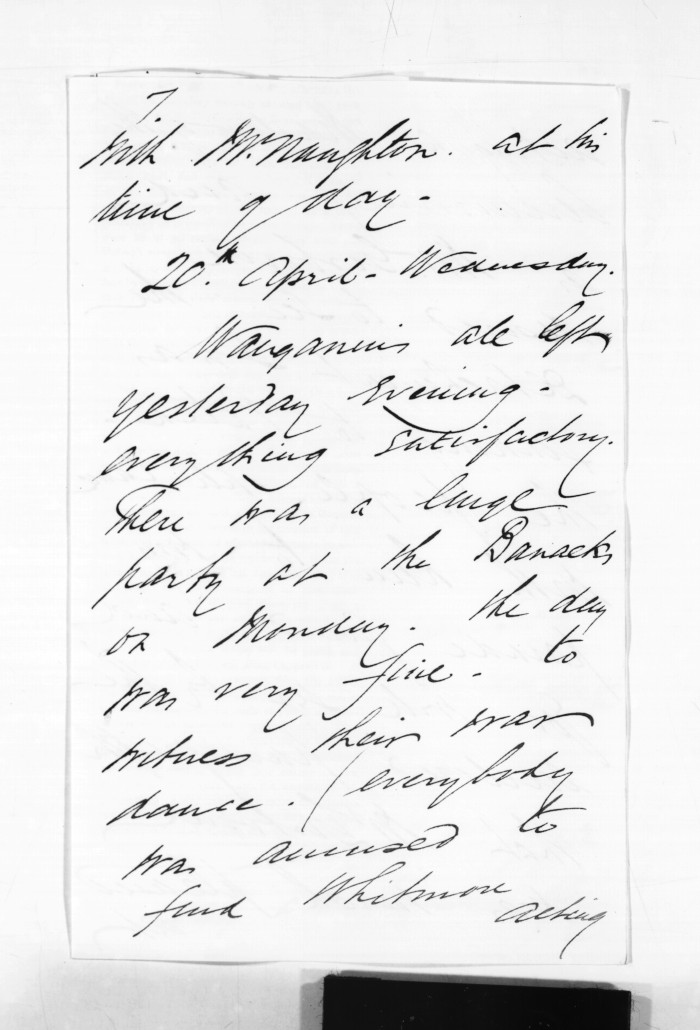 7
with McNaughton. at his
time of day.
20.th April - Wednesday.
Wanganuis all left
yesterday Evening -
everything satisfactory.
There was a large
party at the Barracks
on Monday. the day
was very fine - to
witness their war
dance. (everybody
was amused to
find Whitmore
acting